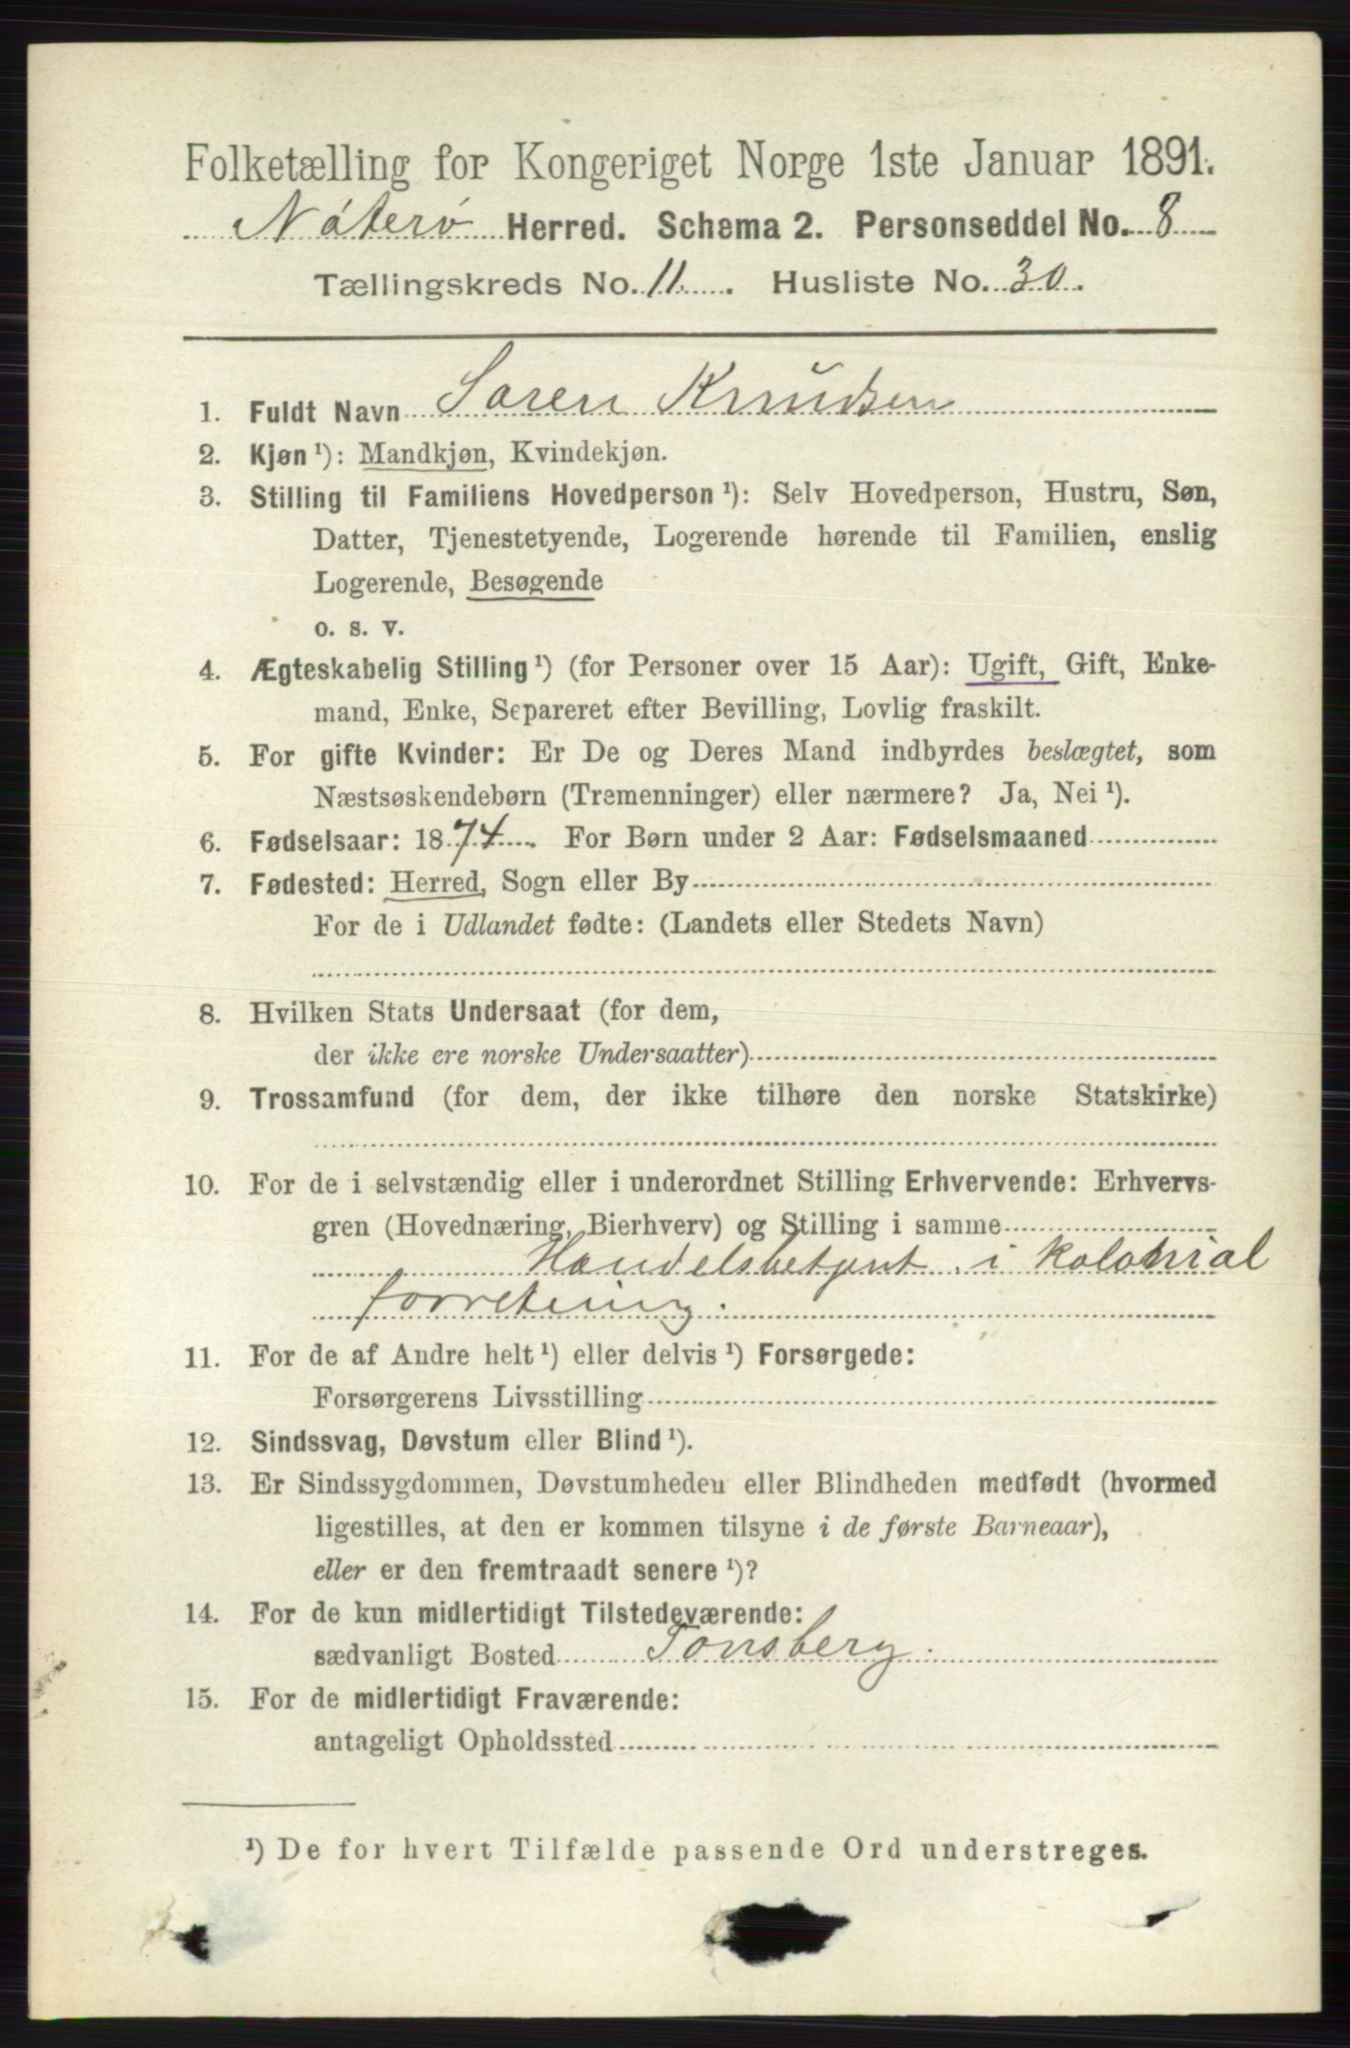 Folketælling for Kongeriget Norge 1ste Januar 1891.
Nøterø Herred. Schema 2. Personseddel No. 8
Tællingskreds No. 11. Husliste No. 30.
1. Fuldt Navn Søren Knudsen
2. Kjøn ¹): Mandkjøn, Kvindekjøn.
3. Stilling til Familiens Hovedperson ¹): Selv Hovedperson, Hustru, Søn,
Datter, Tjenestetyende, Logerende hørende til Familien, enslig
Logerende, Besøgende
o. s. v.
4. Ægteskabelig Stilling ¹) (for Personer over 15 Aar): Ugift, Gift, Enke-
mand, Enke, Separeret efter Bevilling, Lovlig fraskilt.
5. For gifte Kvinder: Er De og Deres Mand indbyrdes beslægtet, som
Næstsøskendebørn (Tremenninger) eller nærmere? Ja, Nei ¹).
6. Fødselsaar: 1874. For Børn under 2 Aar: Fødselsmaaned
7. Fødested: Herred, Sogn eller By
For de i Udlandet fødte: (Landets eller Stedets Navn)
8. Hvilken Stats Undersaat (for dem,
der ikke ere norske Undersaatter)
9. Trossamfund (for dem, der ikke tilhøre den norske Statskirke)
10. For de i selvstændig eller i underordnet Stilling Erhvervende: Erhvervs-
gren (Hovednæring, Bierhverv) og Stilling i samme
Handelsbetjent i kolonial
forretning.
11. For de af Andre helt ¹) eller delvis ¹) Forsørgede:
Forsørgerens Livsstilling
12. Sindssvag, Døvstum eller Blind ¹).
13. Er Sindssygdommen, Døvstumheden eller Blindheden medfødt (hvormed
ligestilles, at den er kommen tilsyne i de første Barneaar),
eller er den fremtraadt senere ¹)?
14. For de kun midlertidigt Tilstedeværende:
sædvanligt Bosted Tønsberg.
15. For de midlertidigt Fraværende:
antageligt Opholdssted
¹) De for hvert Tilfælde passende Ord understreges.